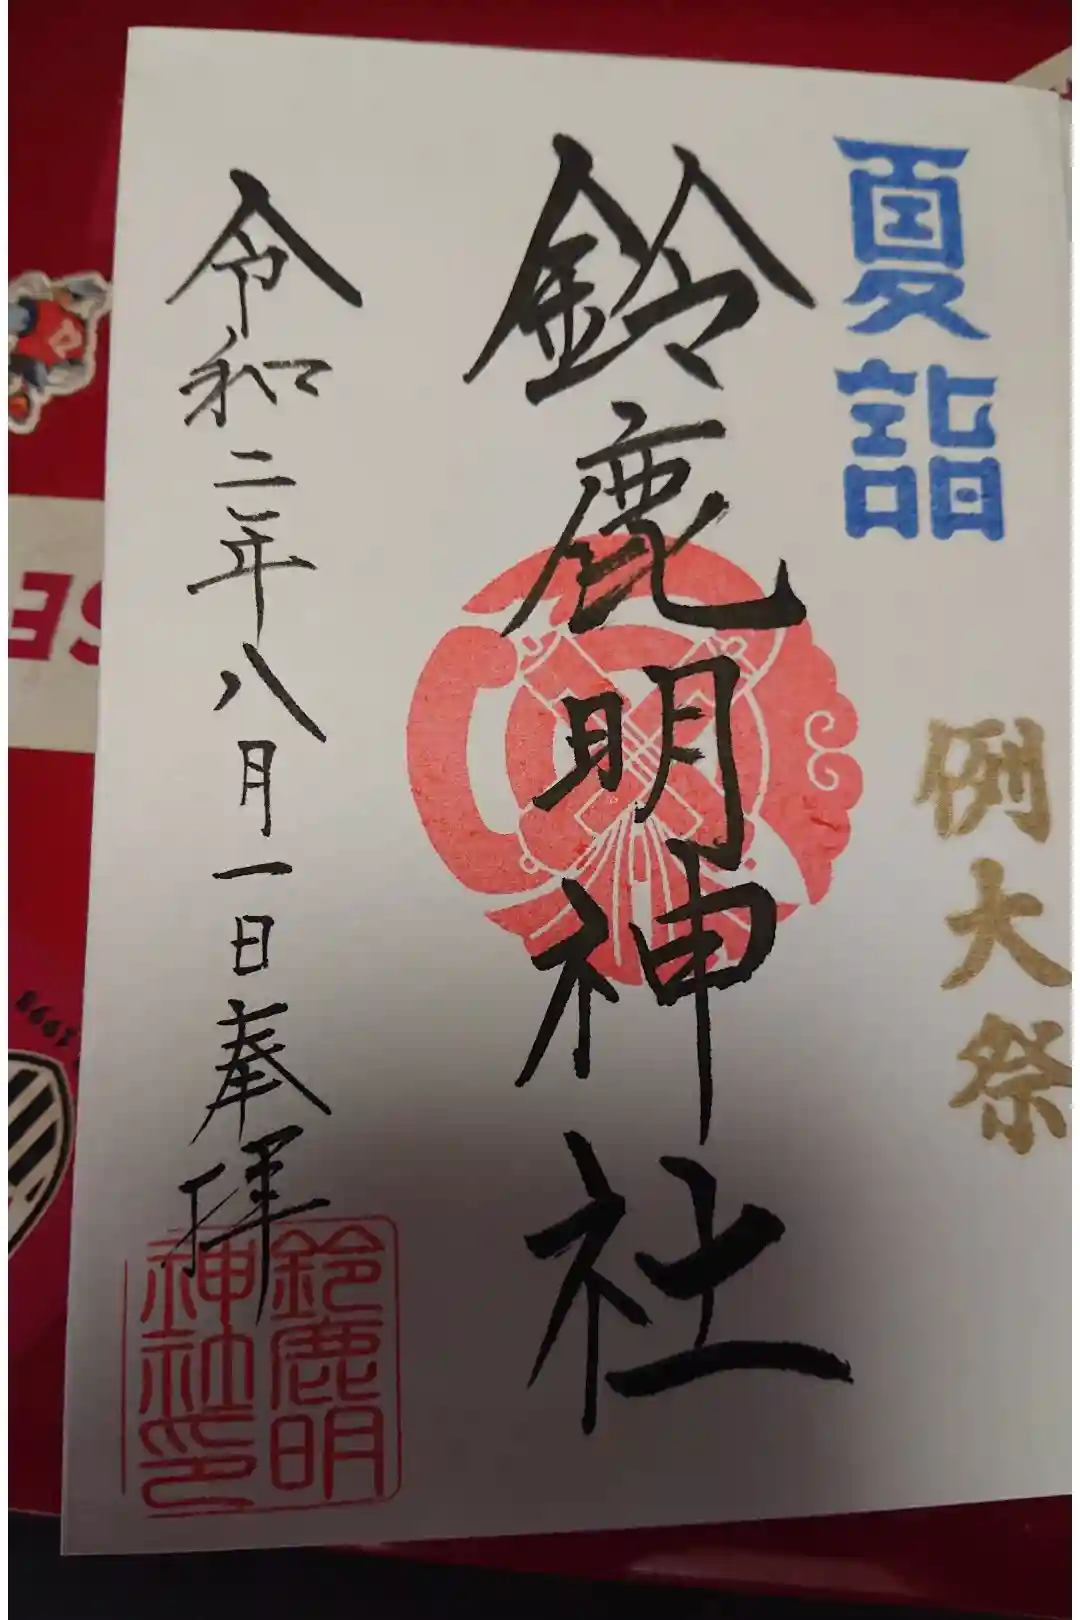 夏詣
例大祭
鈴鹿明神社
令和二年八月一日奉拝
鈴鹿明
神社印
12
SE
1998